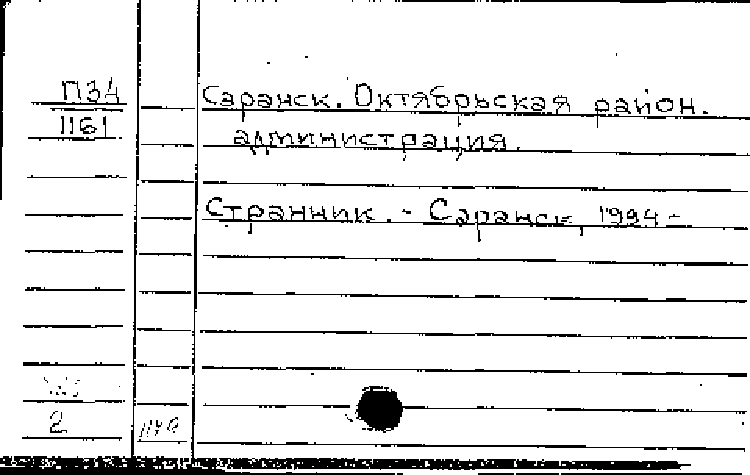 П34
1161
Саранск. Октябрьская район.
администрация.
Странник. - Саранск, 1994 -
2